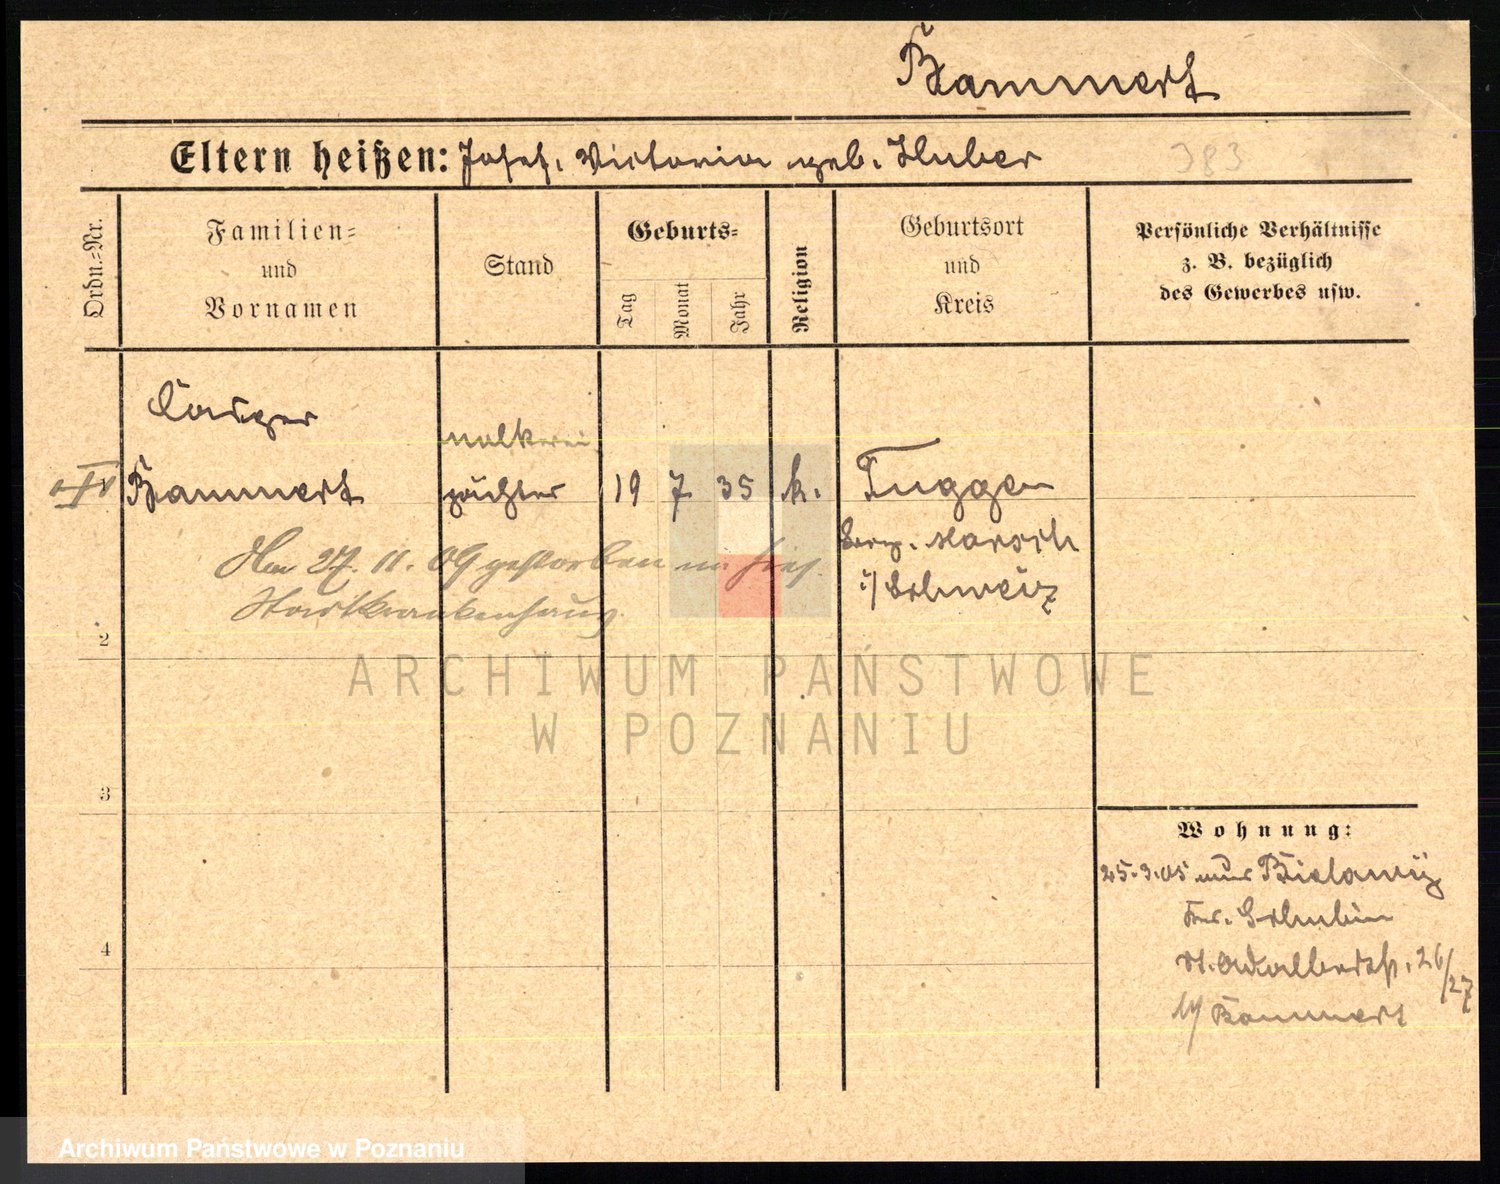 Bammert
Eltern heißen: Josef, Victoria geb. Huber
383
Ordn.=Nr.
Familien=
und
Vornamen
Stand
Geburts=
Tag
Monat
Jahr
Religion
Geburtsort
und
Kreis
Persönliche Verhältnisse
z. B. bezüglich
des Gewerbes usw.
Bammert
molkerei
pächter
19 7 35 k.
Tuggen
Bez. March
i/ Schweiz
Am 27. 11. 09 gestorben im hies.
Stadtkrankenhaus.
2
3
4
Wohnung:
25.3.05 nur Bielawy
Krs. Schubin
St. Adalbertstr. 26/27
b/ Bammert
ARCHIWUM PAŃSTWOWE
W POZNANIU
Archiwum Państwowe w Poznaniu